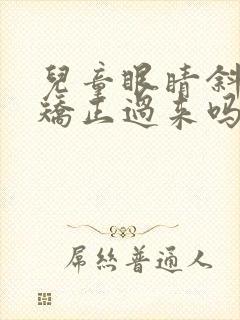 兒童眼睛斜
矯正過来吗
屌丝普通人